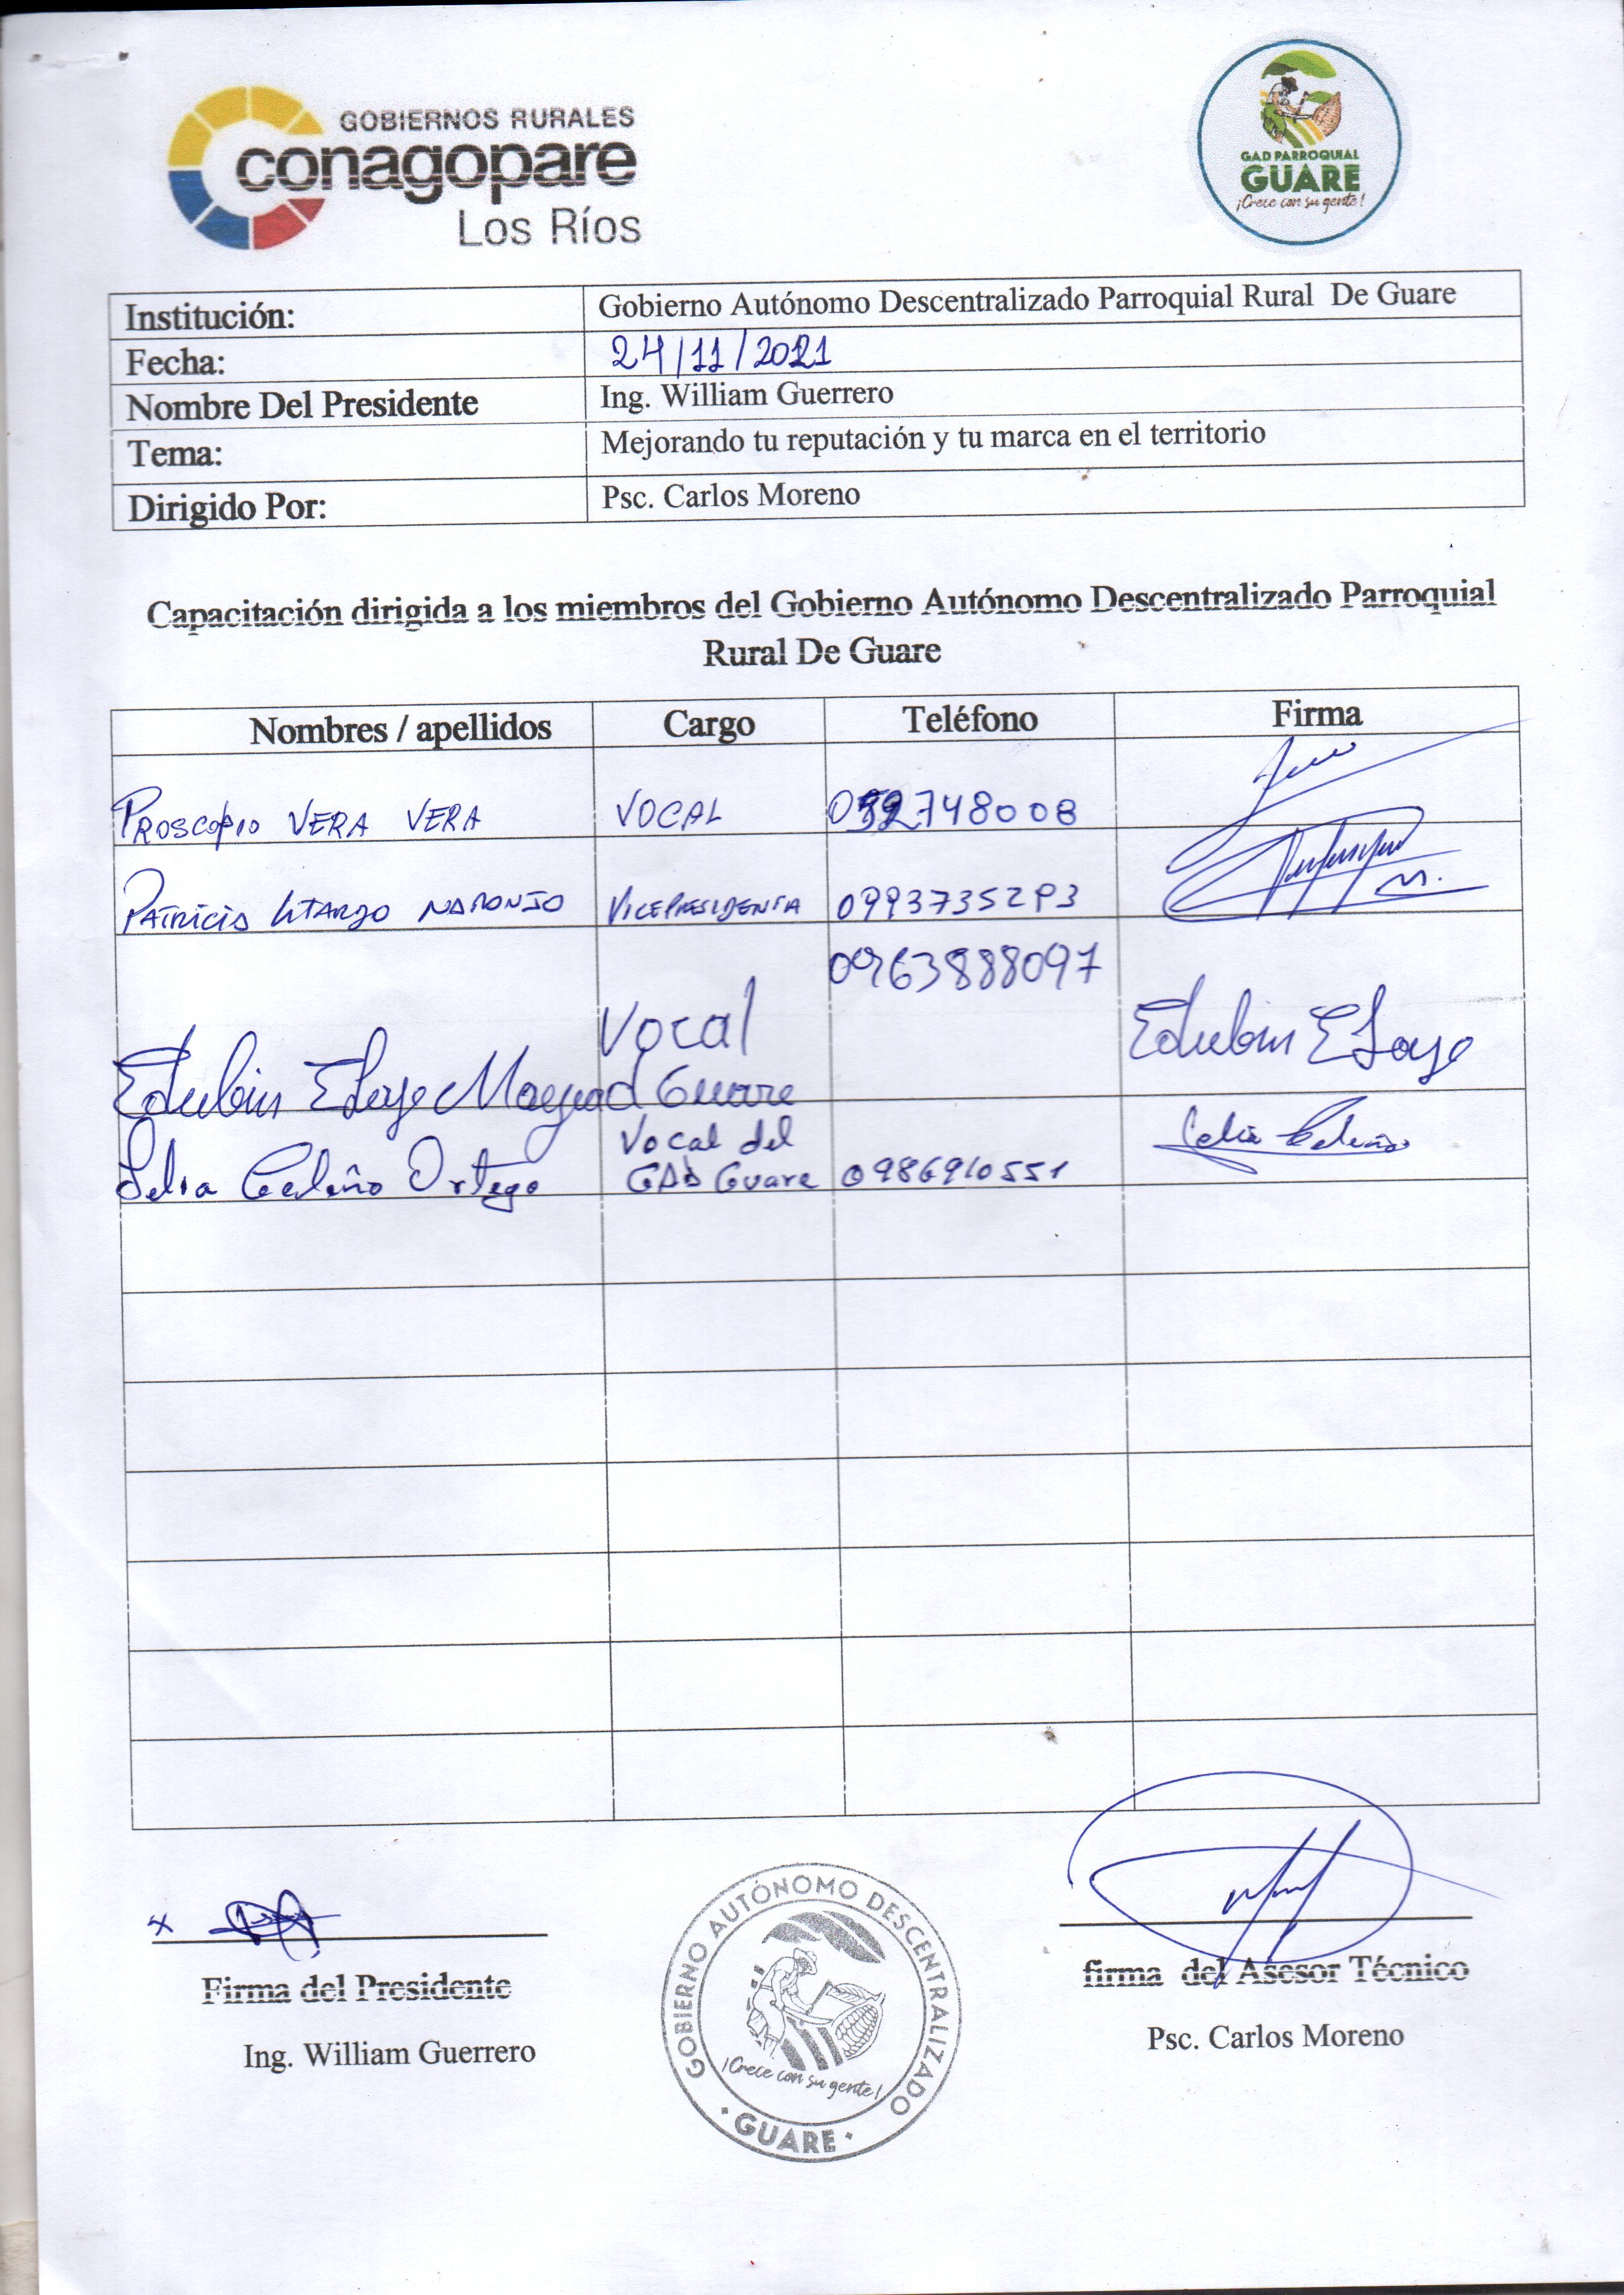 GOBIERNOS RURALES
conagopare
Los Ríos
GAD PARROQUIAL
GUARE
¡Crece con su gente!
Institución: Gobierno Autónomo Descentralizado Parroquial Rural De Guare
Fecha: 24/11/2021
Nombre Del Presidente Ing. William Guerrero
Tema: Mejorando tu reputación y tu marca en el territorio
Dirigido Por: Psc. Carlos Moreno
Capacitación dirigida a los miembros del Gobierno Autónomo Descentralizado Parroquial
Rural De Guare
Nombres / apellidos Cargo Teléfono Firma
PROSCOPIO VERA VERA VOCAL
PATRICIA NARANJO VICEPRESIDENTA 0993735293
0963888097
Vocal
Guare
Vocal del
Celia Cedeño Ortega GAD Guare 0986910551 Celia Cedeño
x
Firma del Presidente
Ing. William Guerrero
GOBIERNO AUTÓNOMO DESCENTRALIZADO
¡Crece con su gente!
GUARE
firma del Asesor Técnico
Psc. Carlos Moreno